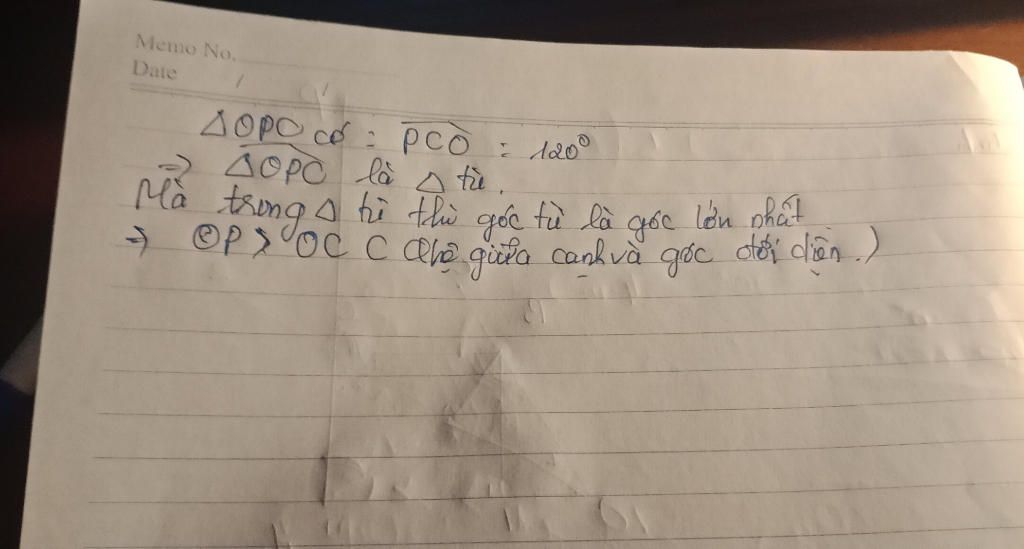 Memo No.
Date / /
△OPC có : PCO = 120°
⇒ △OPC là △ tù.
Mà trong △ tù thì góc tù là góc lớn nhất
⇒ OP > OC ( Qhệ giữa cạnh và góc đối diện.)